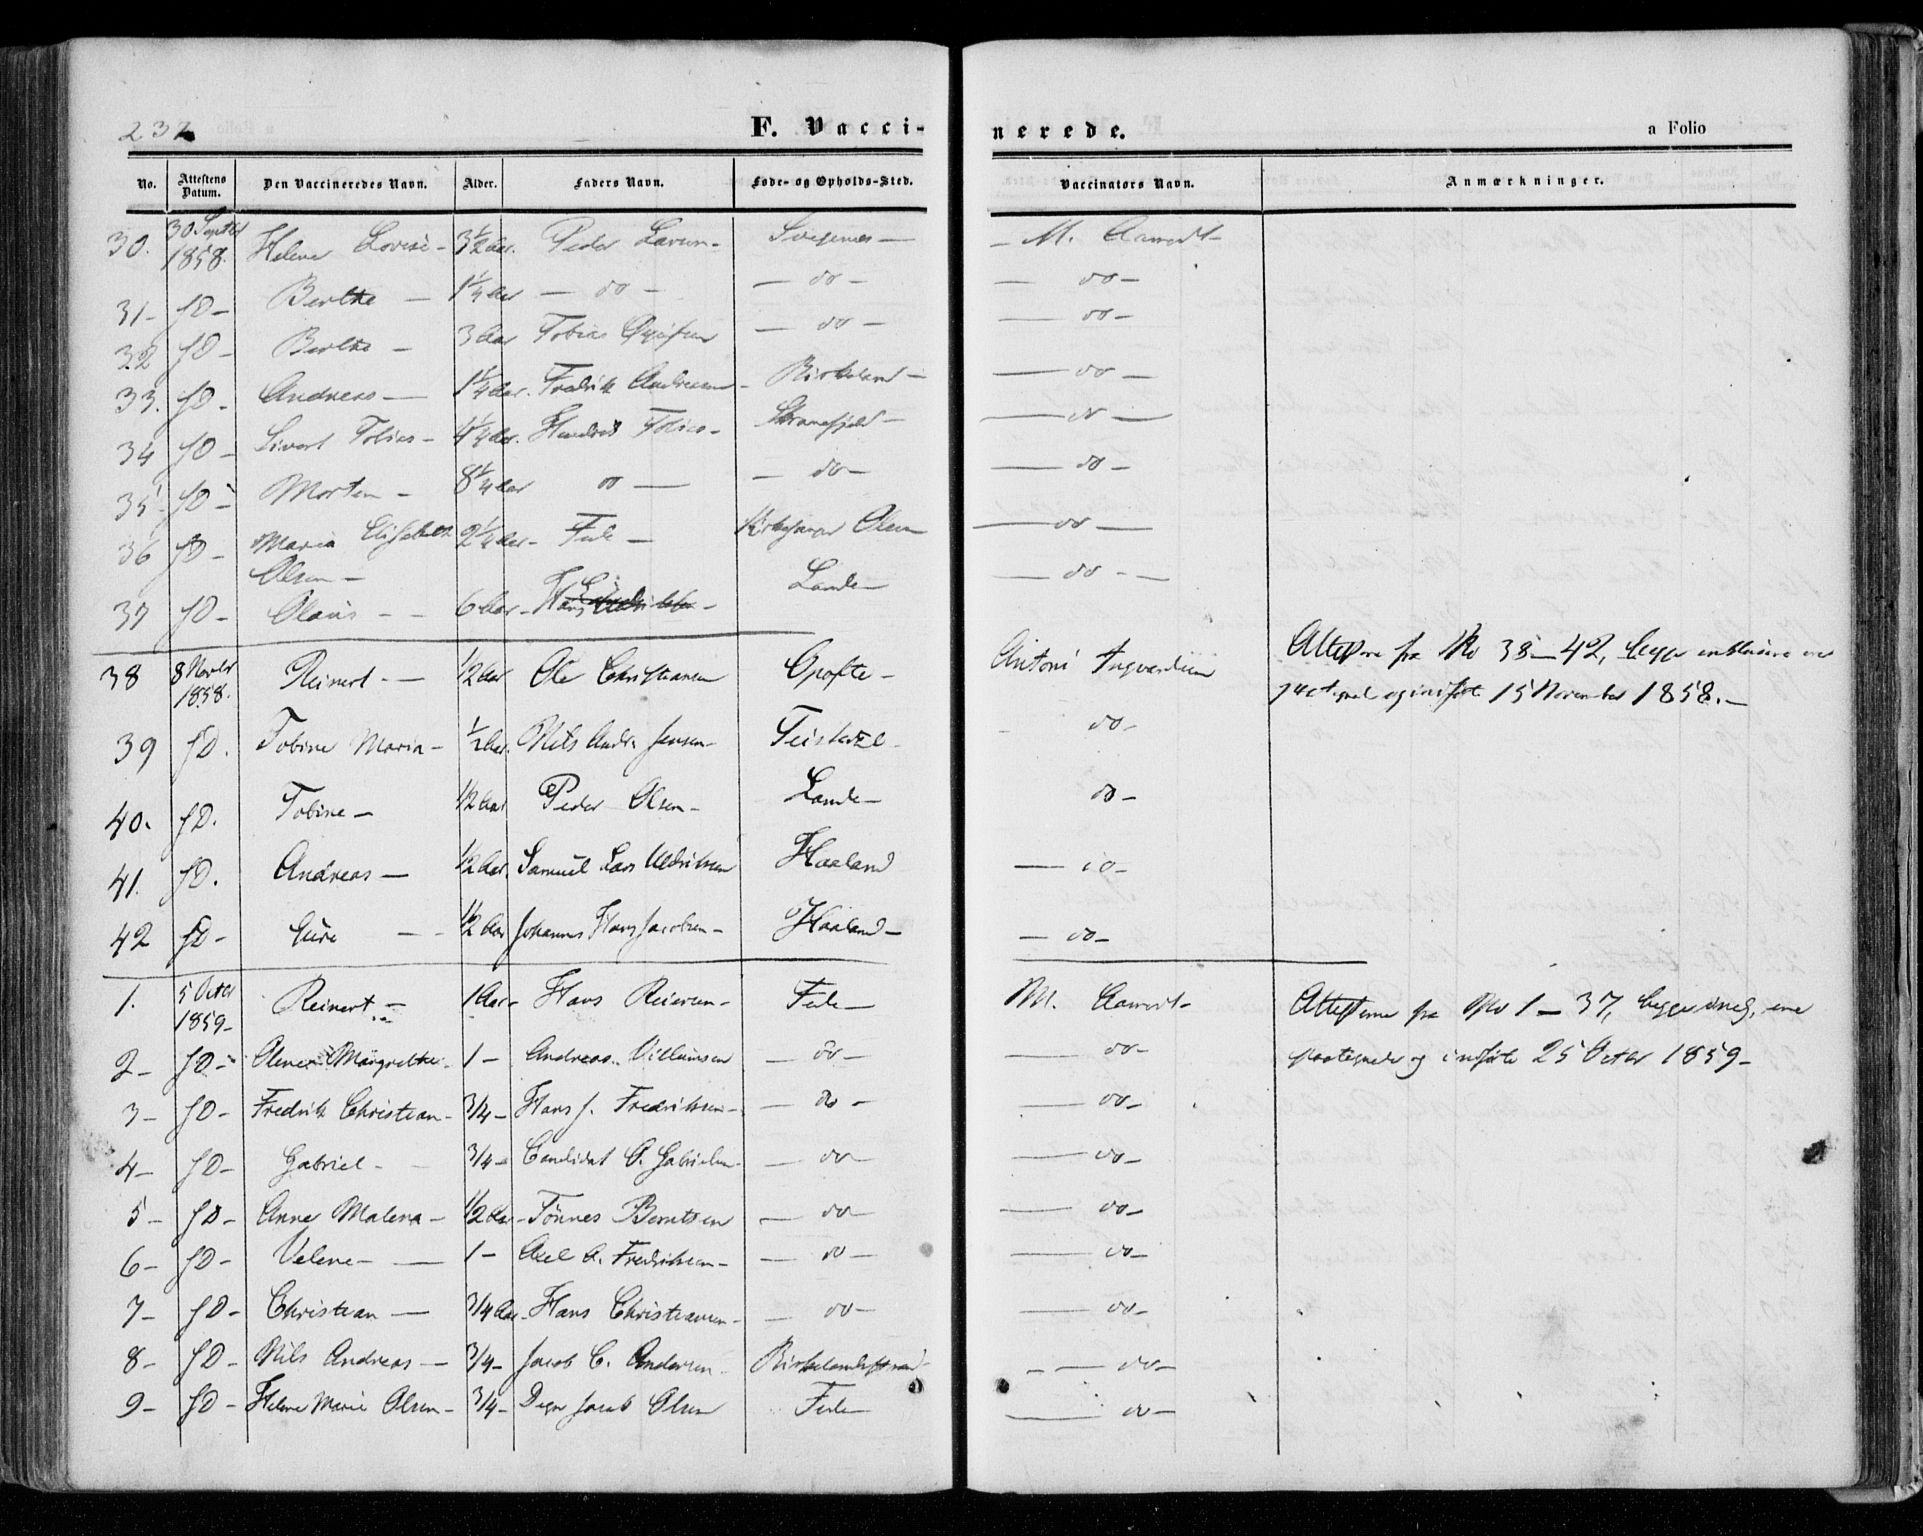 237
F. Vacci-
nerede.
a Folio
No. Attestens Datum. Den Vaccineredes Navn. Alder. Faders Navn. Føde- og Opholds-Sted. Vaccinators Navn. Anmærkninger.
30. 30 Septbr 1858. Helene Lovise - 3 1/2 Aar. Peder Larsen - M. Aamodt -
31 - JD - Berthe - 1 1/4 Aar - do - - do - - do -
32 JD - Berthe - 3 Aar Tobias - do - - do -
33. JD - Andreas - 1 1/4 Aar. Fredrik Andreasen - Birkeland - - do -
34 JD - Sivert Tobias - 4 1/4 Aar. Tobias - - do -
35 - JD - Morten - 8 1/4 Aar do - - do - - do -
36 JD - Maria Elisabeth Olsen - 2 1/4 Aar - Olsen - do -
37 JD - Olaus - - 6 Aar - Hans Lande - - do -
38 8 Novbr 1858. Reinert - - 1/2 Aar Ole Christiansen Opofte - Antoni Ingvardsen Attesterne fra No 38 - 42, begge inklusive ere
paategnet og indført 15 November 1858. -
39 JD. Tobine Maria - 1/2 Aar. Nils Andr. Jensen - - do -
40. JD. Tobine - 1/2 Aar Peder Olsen - Lande - do -
41. JD. Andreas - 1/2 Aar. Samuel Lars Uldriksen Haaland - do -
42 JD - Gure - - 1/2 Aar Johannes Hans Jacobsen - Haaland - - do -
1. 5 Octbr 1859 - Reinert - 1 Aar - Hans Reiersen - Fede - M. Aamodt - Attesterne fra No 1 - 37, begge incl, ere
paategnede og indførte 25 Octbr 1859 -
2 - JD - Olene Margrethe - 1 - Andreas Villumsen - do - - do -
3 - JD - Fredrik Christian - 3/4 - Hans J. Fredriksen - - do - - do -
4 - JD - Gabriel - 3/4 - Candidat O. Gabrielsen - - do - do -
5 - JD - Anne Malena - 1/2 Aar - Tönnes Berntsen - do - - do -
6 - JD - Velene - - 1 - Axel A. Fredriksen - - do - - do -
7 - JD - Christian - 3/4 Aar - Hans Christiansen - - do - - do -
8 - JD - Nils Andreas - 3/4 - Jacob C. Andersen - Birkelandstrand - - do -
9 - JD - Helene Marie Olsen - 3/4 - Jacob Olsen Fede - - do -